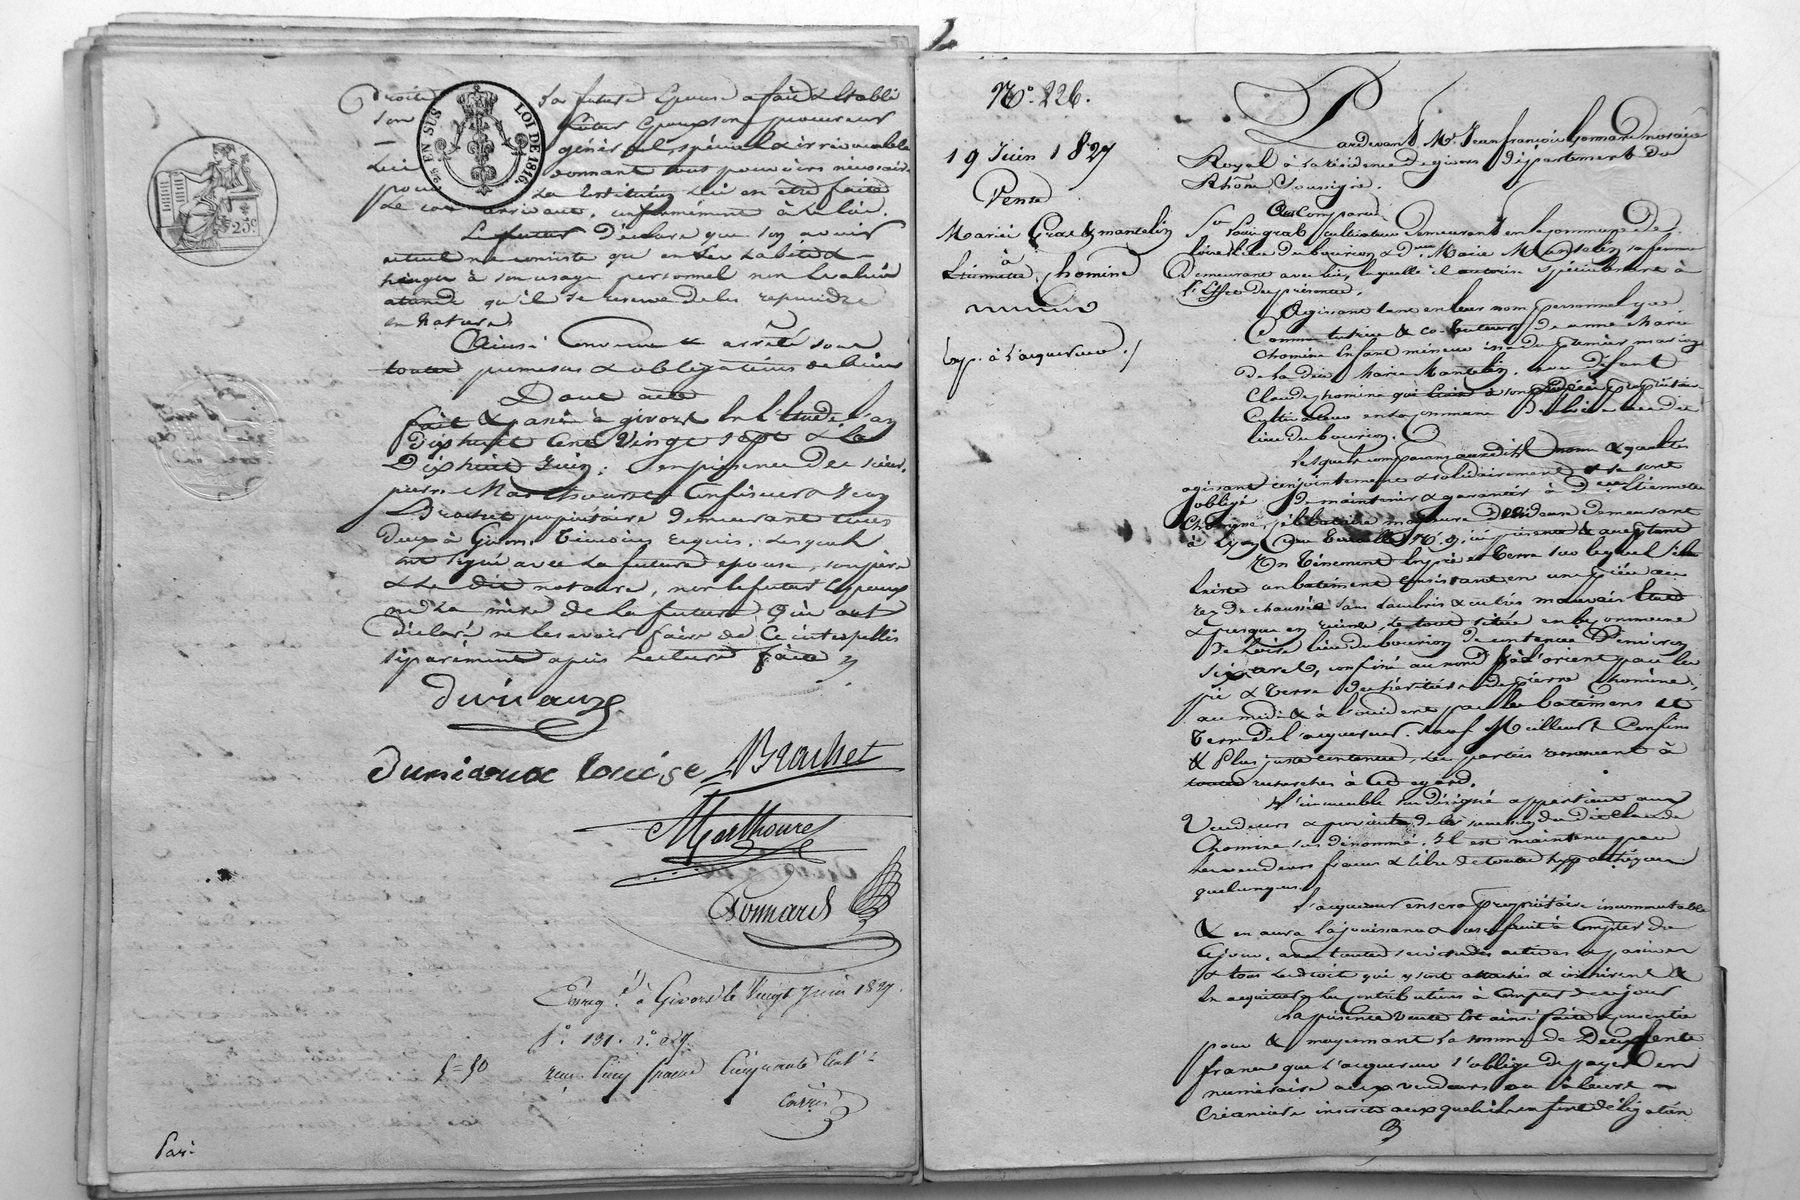 Droits La future Epouse a fait & établi
son futur Epoux son procureur
général, spécial & irrévocable
Lui donnant tous pouvoirs nécessaires
pour La restitution lui en être faite
Le cas arrivant, conformément à la loi.
Le futur Déclare que son avoir
actuel ne consiste qu'en Ses habits &
linges à son usage personnel non Evalués
attendu qu'il se réserve de les reprendre
en Nature
Ainsi Convenu & arrêté sous
toutes promesses & obligations de biens
Dont acte
fait & passé à givors En l'Etude, L'an
Dix huit Cent Vingt Sept & Le
Dix huit Juin, en présence des sieurs
pierre Marthouret Confiseur & Jean
Brachet propriétaire Demeurant tous
Deux à Givors Témoins requis, Lesquels
ont Signé avec La future épouse, son père
& Le dit notaire, non le futur Epoux
ni La mère de La future Qui ont
Déclaré ne le savoir faire de Ce interpellés
Séparément après Lecture faite
EN SUS LOI DE 1816.
25c
duniaux Louise Brachet
Marthouret
Bonnard
Enregé. à Givors le Vingt Juin 1827.
reçu Cinq francs Cinquante Centes
5=50
Par
No. 226.
19 Juin 1827
Vente
Mariés Gras & mantelin
à
Etiennette Chomine
Exp. à l'acquereur
Pardevant Me. Jean françois Bonnard notaire
Royal à la résidence de givors département du
Rhône Soussigné.
Ont Comparu
Sr Louis gras Cultivateur Demeurant en la commune de
Loire Lieu du bourion & De. Marie Mantelin sa femme
Demeurant avec lui, laquelle il autorise spécialement à
l'Effet des présentes.
Agissant tant en leur nom personnel que
Comme tutrice & co-tuteur de anne Marie
Chomine Enfant mineur issu du premier mariage
de la dite Marie Mantelin, avec défunt
Claude Chomine qui était à son décès propriétaire
Cultivateur en la Commune de Loire au dit
lieu du bourion.
Lesquels comparans aux dits noms & qualités
agissant conjointement & solidairement & se sont
obligés de maintenir & garantir à Dlle Etiennette
Chomine, célibataire majeure Dévideuse demeurant
à Lyon, ici présente & acceptante
Un Ténement En pré & Terre sur lequel il
Existe un batiment Consistant en une pièce au
rez de chaussée sans Lambris & en très mauvais Etat
& presque en ruine, Le tout situé en la Commune
de Loire lieu du bourion de contenue D'environ
Six ares, confiné au nord & à l'orient par les
pré & terre des héritiers de pierre Chomine,
au midi & à l'occident par les batimens et
terre de l'acquereur. Sauf Meilleurs Confins
& Plus juste contenue, les parties renoncent à
toutes recherches à cet égard.
L'immeuble sus désigné appartient aux
Vendeurs & provient de la succession du dit Claude
Chomine sus dénommé. Il est maintenu par
les vendeurs francs & libre de toutes hypothèques
quelconques.
L'acquereur en sera Propriétaire incommutable
& en aura la jouissance & usufruit à Compter de
Ce jour, avec toutes servitudes actives & passives
& tous les droits qui y sont attachés & inhérents &
En acquittera les contributions à compter de ce jour
La présente Vente est ainsi faite & consentie
pour & moyennant la somme de Deux Cents
francs que l'acquereur s'oblige de payer En
numéraire aux vendeurs ou à leurs
Créanciers inscrits auxquels il en font délégation